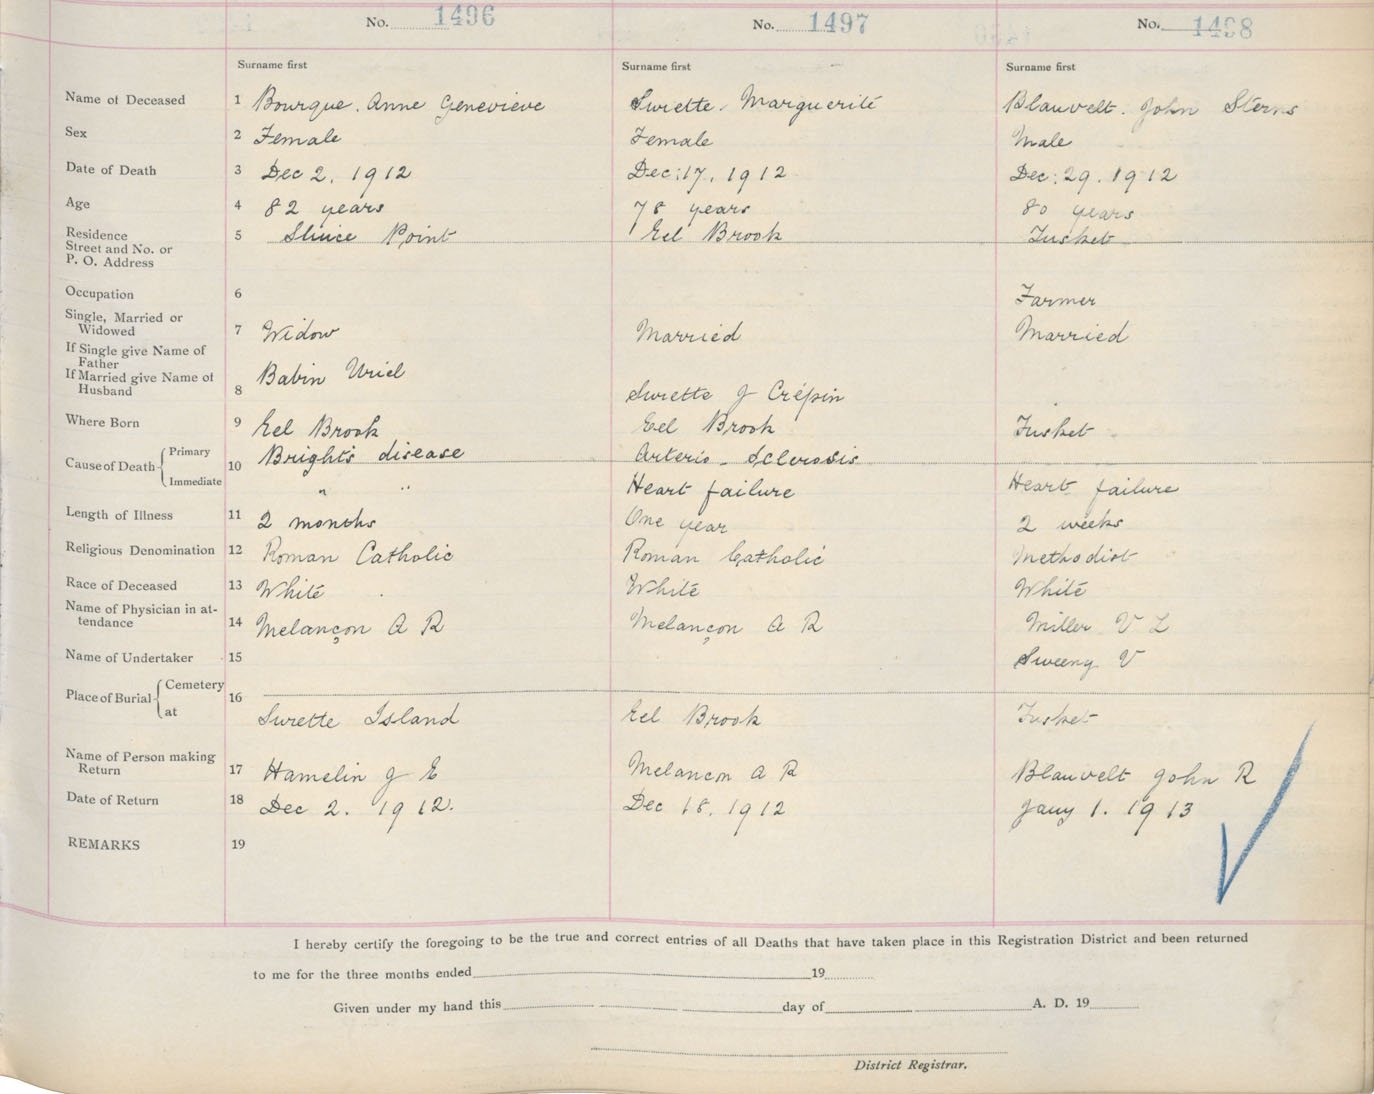 No. 1496 No. 1497 No. 1498
Surname first Surname first Surname first
Name of Deceased 1 Bourque. Anne Genevieve Surette. Marguerite Blauvelt. John Sterns
Sex 2 Female Female Male
Date of Death 3 Dec 2. 1912 Dec: 17. 1912 Dec: 29. 1912
Age 4 82 years 78 years 80 years
Residence 5 Sluice Point Eel Brook Tusket
Street and No. or
P. O. Address
Occupation 6 Farmer
Single, Married or
Widowed 7 Widow Married Married
If Single give Name of
Father
If Married give Name of Babin Uriel
Husband 8 Surette J Crépin
Where Born 9 Eel Brook Eel Brook Tusket
Cause of Death Primary 10 Bright's disease Arterio-Sclerosis
Immediate " " Heart failure Heart failure
Length of Illness 11 2 months One year 2 weeks
Religious Denomination 12 Roman Catholic Roman Catholic Methodist
Race of Deceased 13 White White White
Name of Physician in at-
tendance 14 Melançon A R Melançon A R Miller V L
Name of Undertaker 15 Sweeny V
Place of Burial Cemetery 16
at Surette Island Eel Brook Tusket
Name of Person making
Return 17 Hamelin J E Melancon A R Blauvelt John R
Date of Return 18 Dec 2. 1912. Dec 18. 1912 Jany 1. 1913
REMARKS 19
I hereby certify the foregoing to be the true and correct entries of all Deaths that have taken place in this Registration District and been returned
to me for the three months ended 19
Given under my hand this day of A. D. 19
District Registrar.